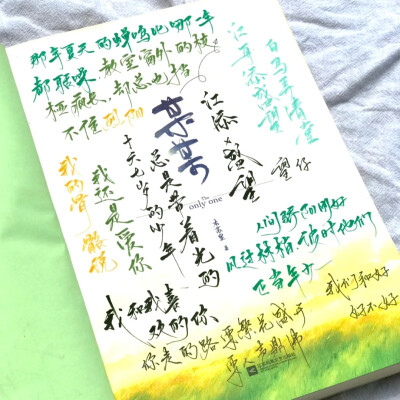 那年夏天的蝉鸣比哪一年
都聒噪,教室窗外的枝
桠疯长,却总也挡
不住烈阳
白马弄堂
江添×盛望
某某
The
only one
木苏里 著
总是带着光的
十六七岁的少年
我还是爱你
我的骨骼说
人间骄阳刚好
风过林梢 彼时他们
正当年少
我和我喜
欢的你
我们和好
好不好
你走的路要繁花盛开
要人声鼎沸